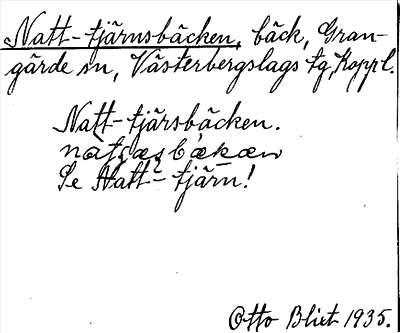 Natt-tjärnsbäcken, bäck, Gran-
gärde sn, Västerbergslags tg, Koppl.
Natt-tjärsbäcken.
Se Natt-tjärn!
Otto Blixt 1935.